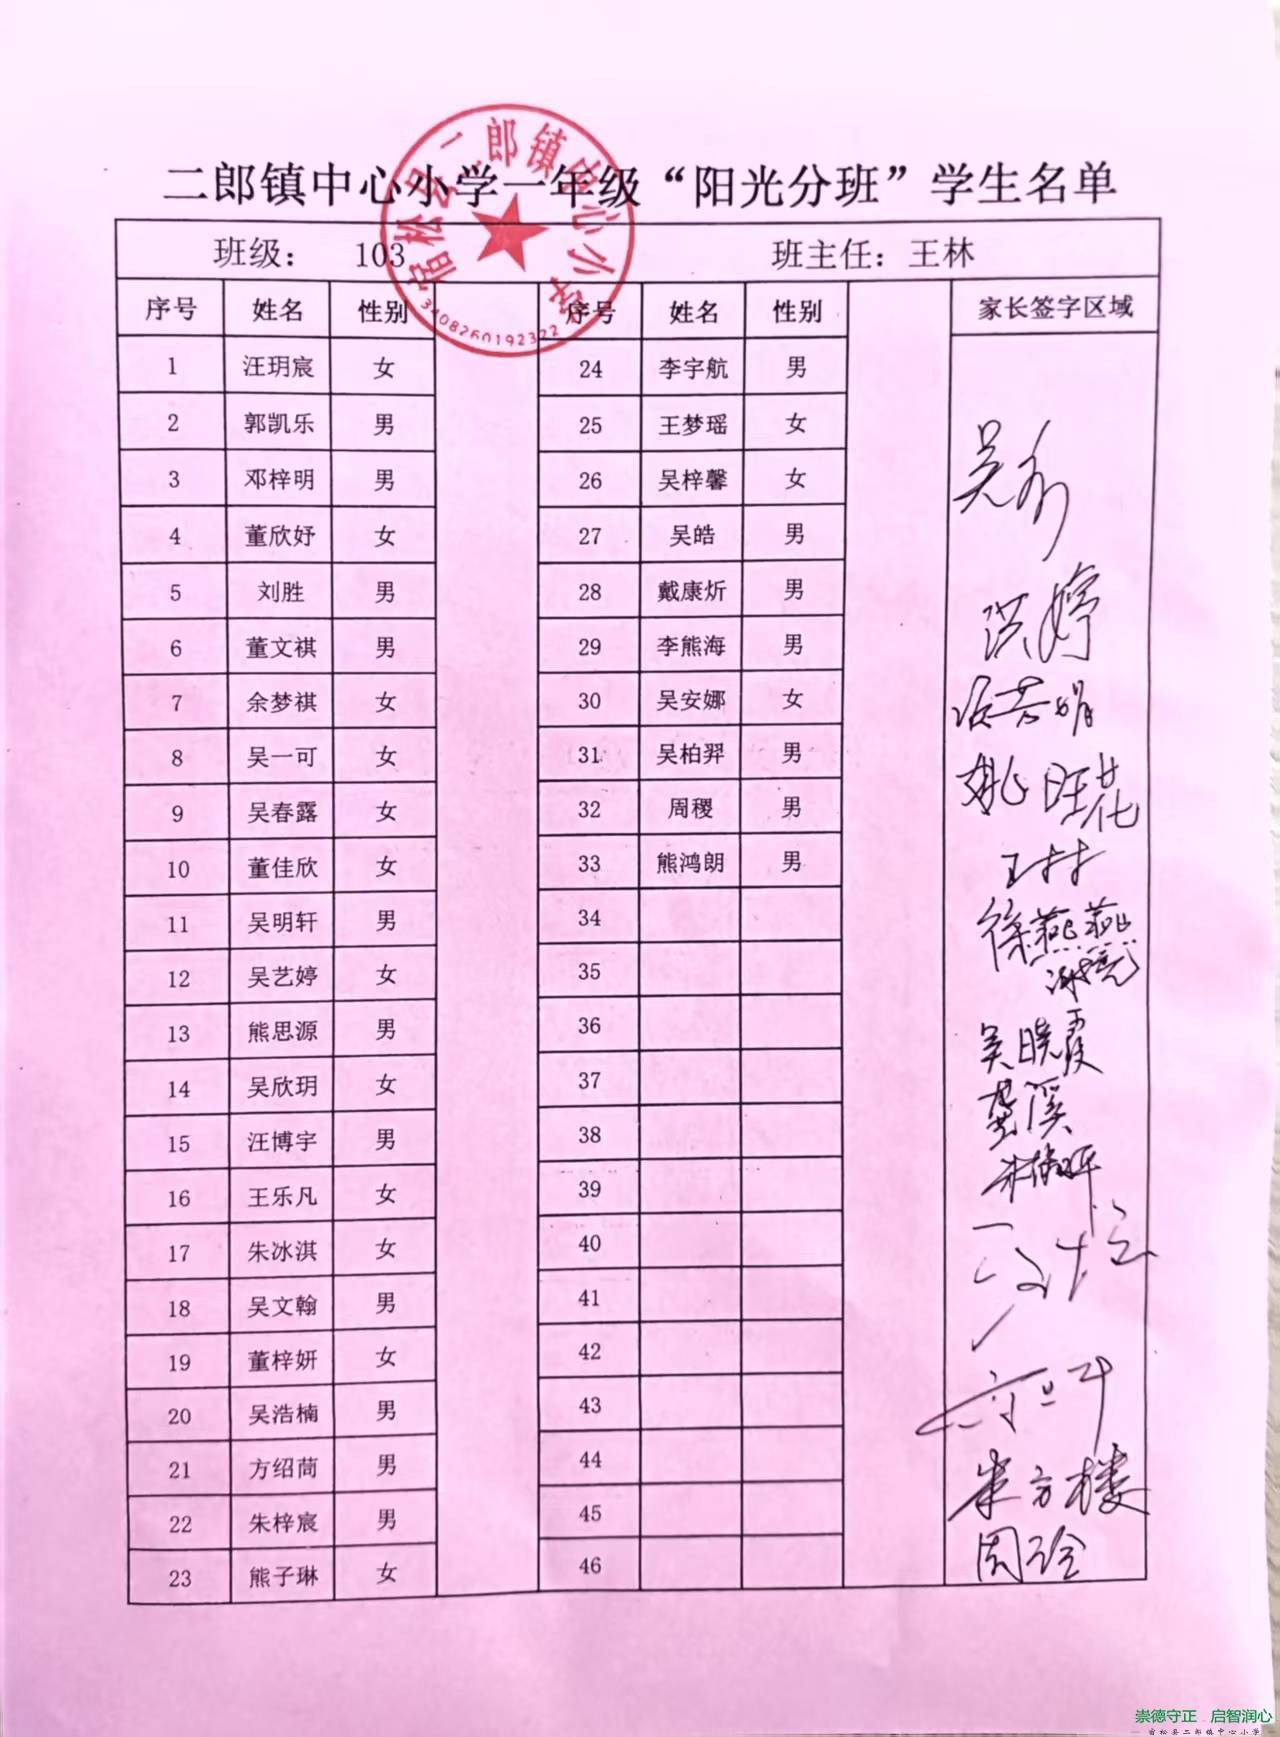 二郎镇中心小学一年级“阳光分班”学生名单
宿松县二郎镇中心小学
3408260192322
班级： 103 班主任：王林
序号 姓名 性别 序号 姓名 性别 家长签字区域
1 汪玥宸 女 24 李宇航 男
2 郭凯乐 男 25 王梦瑶 女
3 邓梓明 男 26 吴梓馨 女
4 董欣妤 女 27 吴皓 男
5 刘胜 男 28 戴康炘 男
6 董文祺 男 29 李熊海 男
7 余梦祺 女 30 吴安娜 女
8 吴一可 女 31 吴柏羿 男
9 吴春露 女 32 周稷 男
10 董佳欣 女 33 熊鸿朗 男
11 吴明轩 男 34
12 吴艺婷 女 35
13 熊思源 男 36
14 吴欣玥 女 37
15 汪博宇 男 38
16 王乐凡 女 39
17 朱冰淇 女 40
18 吴文翰 男 41
19 董梓妍 女 42
20 吴浩楠 男 43
21 方绍茼 男 44
22 朱梓宸 男 45
23 熊子琳 女 46
洪婷
姚旺花
王林
徐燕燕
吴晓霞
朱方楼
周玲
崇德守正 启智润心
宿松县二郎镇中心小学